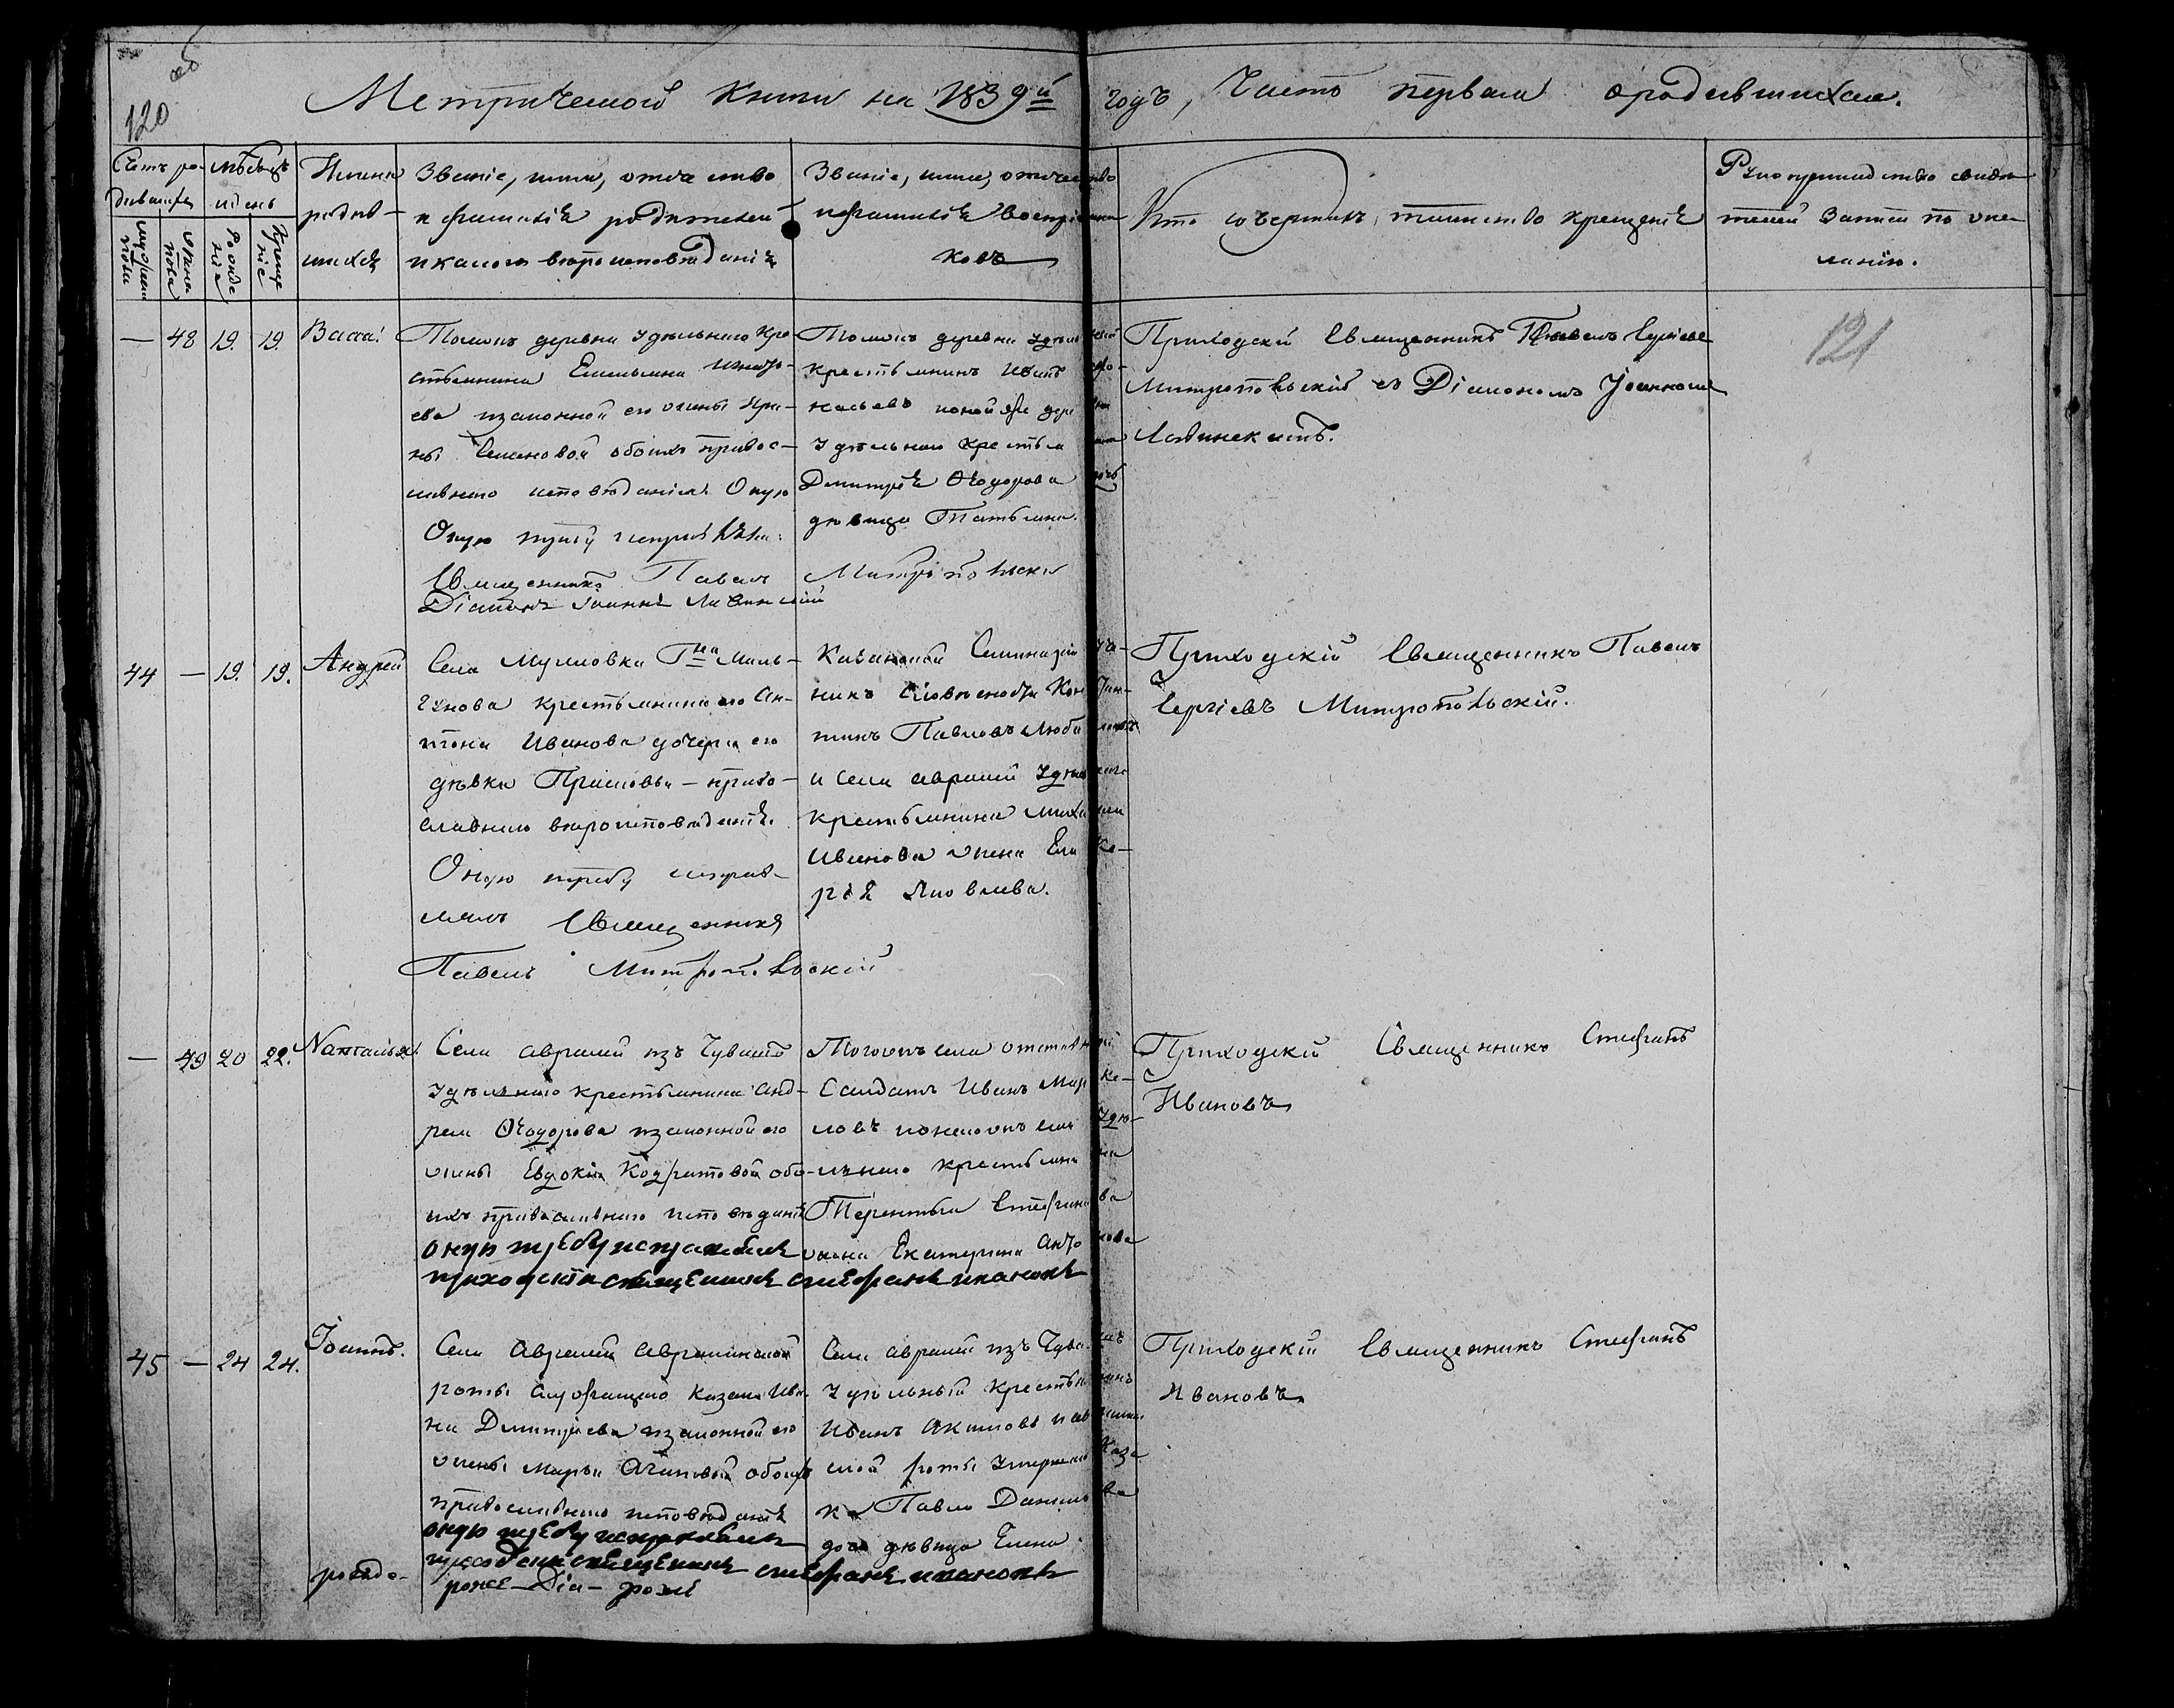 об
120
Метрической книги на 1839й годъ, Часть первая о родившихся.
Счетъ родившихся
мужеска пола
женска пола
мѣсяцъ и день
рожденіе
крещеніе
Имена родившихся
Званіе, имя, отчество
и фамилія родителей
и какого вѣроисповѣданія
Званіе, имя, отчество
и фамилія воспріемниковъ
Кто совершалъ таинство крещенія
Рукоприкладство свидѣтелей записи по желанію.
121
— 48 19. 19. Васса
Томожъ деревни удѣльнаго кре-
стьянина Емельяна Игнатьева
и законной его жены Ири-
ны Семеновой обоихъ правос-
лавнаго исповѣданія Оную
Оную требу исправляли:
Священникъ Павелъ Митропольскій
Діаконъ Іоаннъ Лавинскій
Томожъ деревни удѣльный
крестьянинъ Иванъ Афо-
насьевъ и оной же деревни
удѣльнаго крестьянина
Димитрія Ѳеодорова дочь
дѣвица Татьяна.
Приходскій Священникъ Павелъ Сергіевъ
Митропольскій съ Діакономъ Іоанномъ
Лавинскимъ.
44 — 19. 19. Андрей
Села Муиловки Гна Маль-
гунова крестьянина его Ан-
тона Иванова дочери его
дѣвки Прасковьи — право-
славнаго вѣроисповѣданія.
Оную требу исправ-
лялъ Священникъ
Павелъ Митропольскій
Казанской Семинаріи уче-
никъ словесности Констан-
тинъ Павловъ
и села Авралей удѣльнаго
крестьянина Михаила
Иванова жена Гли ке-
рія Яковлева.
Приходскій Священникъ Павелъ
Сергіевъ Митропольскій.
— 49 20 22. Наталья.
Села Авралей изъ Чувашъ
удѣльнаго крестьянина Анд-
рея Ѳеодорова и законной его
жены Евдокіи Кодратовой обо-
ихъ православнаго исповѣданія
оную требу исправлялъ
приходскій священникъ стефанъ ивановъ
Тогожъ села отставной
Солдатъ Иванъ Марке-
ловъ и онаго жъ села удѣ-
льнаго крестьянина
Терентья Стефанова
жена Екатерина
Приходскій Священникъ Стефанъ
Ивановъ
45 — 24 24. Іоаннъ.
Села Авралей Авралинской
роты служащаго Казака Ива-
на Димитріева и законной его
жены Марьи Осиповой обоихъ
православнаго исповѣданія
оную требу исправлялъ
приходскій священникъ стефанъ ивановъ
Села Авралей изъ Чувашъ
удѣльный крестьянинъ
Иванъ Акимовъ и Авралин-
ской роты умершаго Каза
ка Павла Данилова
дочь дѣвица Елена.
Приходскій Священникъ Стефанъ
Ивановъ